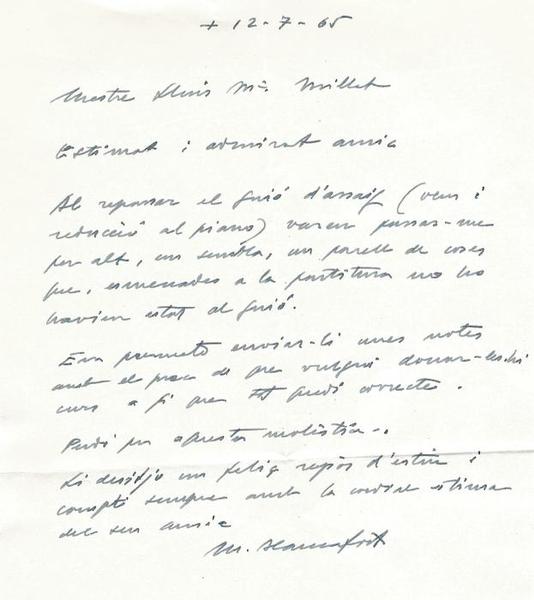 + 12-7-65
Mestre Lluís Mª Millet
Estimat i admirat amic
Al repassar el guió d'assaig (veus i
reducció al piano) varen passar-me
per alt, em sembla, un parell de coses
que, esmenades a la partitura no ho
havien estat al guió.
Em permeto enviar-li unes notes
amb el prec de que vulgui donar-les-hi
curs a fi que tot quedi correcte.
Perdó per aquesta molèstia.
Li desitjo un feliç repòs d'estiu i
compti sempre amb la cordial estima
del seu amic
M. Blancafort